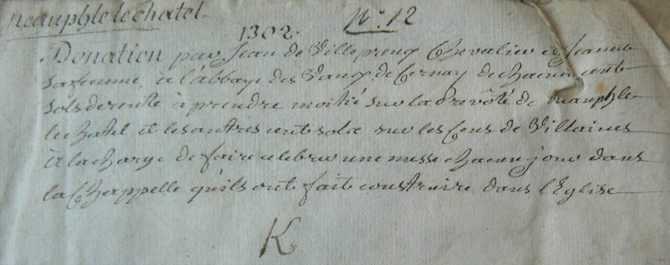 neauphle le chatel
1302. N.º 12
Donation par Jean de Villepreux Chevalier et Jeanne
sa femme, a l'abbaye des Vaux de Cernay de chacun cent
sols de rente à prendre moitié sur la Prevôté de neauphle
le chatel et les autres cent sols sur les Cens de Villaines
à la charge de faire celebrer une messe chacun jour dans
la Chappelle qu'ils ont fait construire dans l'Eglise
K